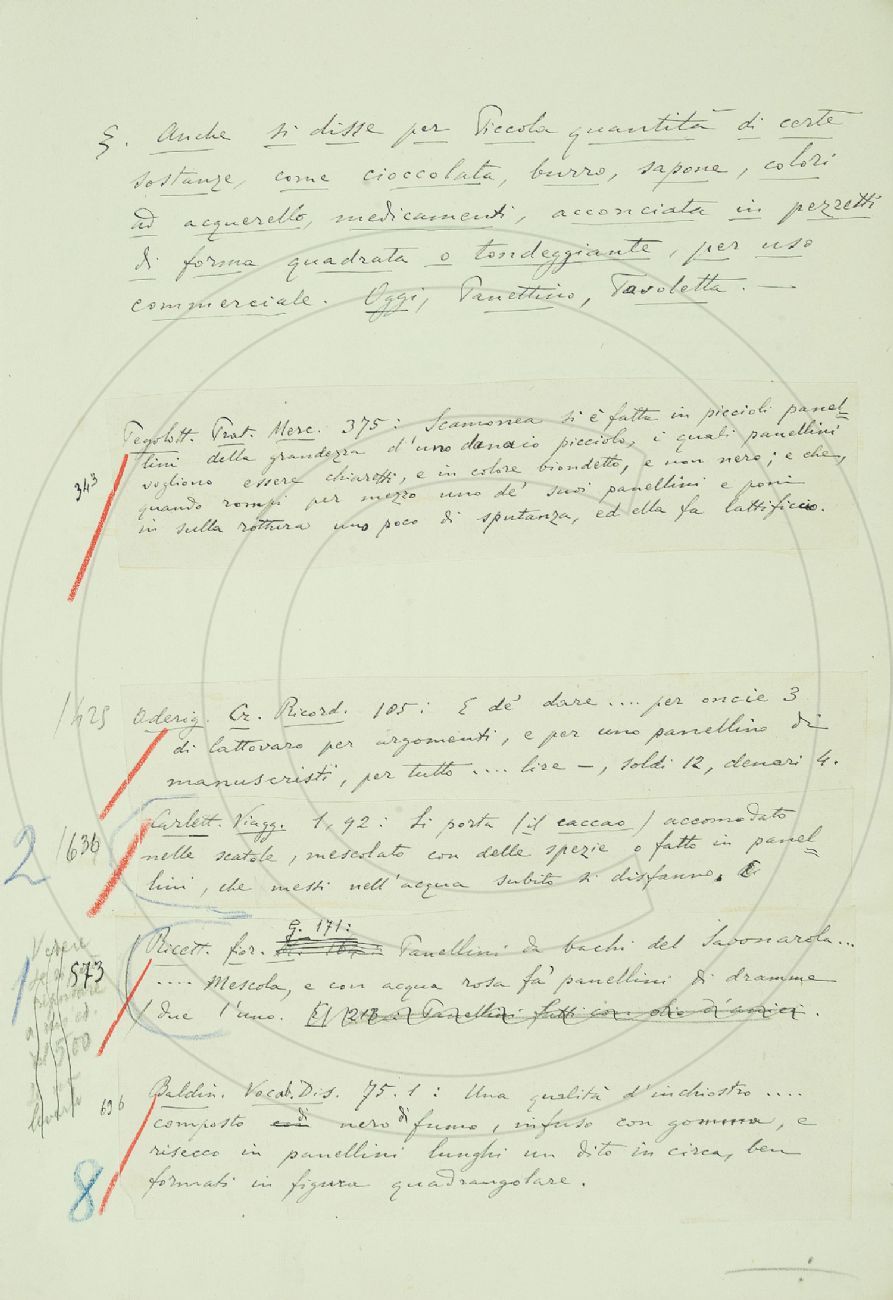 §. Anche si disse per Piccola quantità di certe
sostanze, come cioccolata, burro, sapone, colori
ad acquerello, medicamenti, acconciata in pezzetti
di forma quadrata o tondeggiante, per uso
commerciale. Oggi, Panettino, Tavoletta. —
Pegolott. Prat. Merc. 375: Scamonea si è fatta in piccioli panel-
343
lini della grandezza d'uno danaio picciolo, i quali panellini
vogliono essere chiaretti, e in colore biondetto, e non nero; e che,
quando rompi per mezzo uno de' suoi panellini e poni
in sulla rottura uno poco di sputanza, ed ella fa lattificcio.
1425
Oderig. Cr. Ricord. 105: E de' dare .... per oncie 3
di lattovaro per argomenti, e per uno panellino di
manuscristi, per tutto .... lire —, soldi 12, denari 4.
2
1636
Carlett. Viagg. 1, 92: Si porta (il caccao) accomodato
nelle scatole, mescolato con delle spezie o fatto in panel-
lini, che messi nell'acqua subito si disfanno.
G. 171:
1573
Ricett. for. Panellini da bachi del Savonarola...
.... Mescola, e con acqua rosa fa' panellini di dramme
due l'uno. E 218: Panellini fatti con olio d'
1
636
Baldin. Vocab. Dis. 75. 1: Una qualità d'inchiostro ....
composto di nero di fumo, infuso con gomma, e
risecco in panellini lunghi un dito in circa, ben
formati in figura quadrangolare.
8